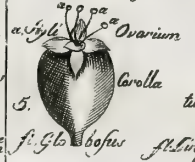 a a a
a. Styli Ovarium
Corolla
5.
fl. Glo bosus